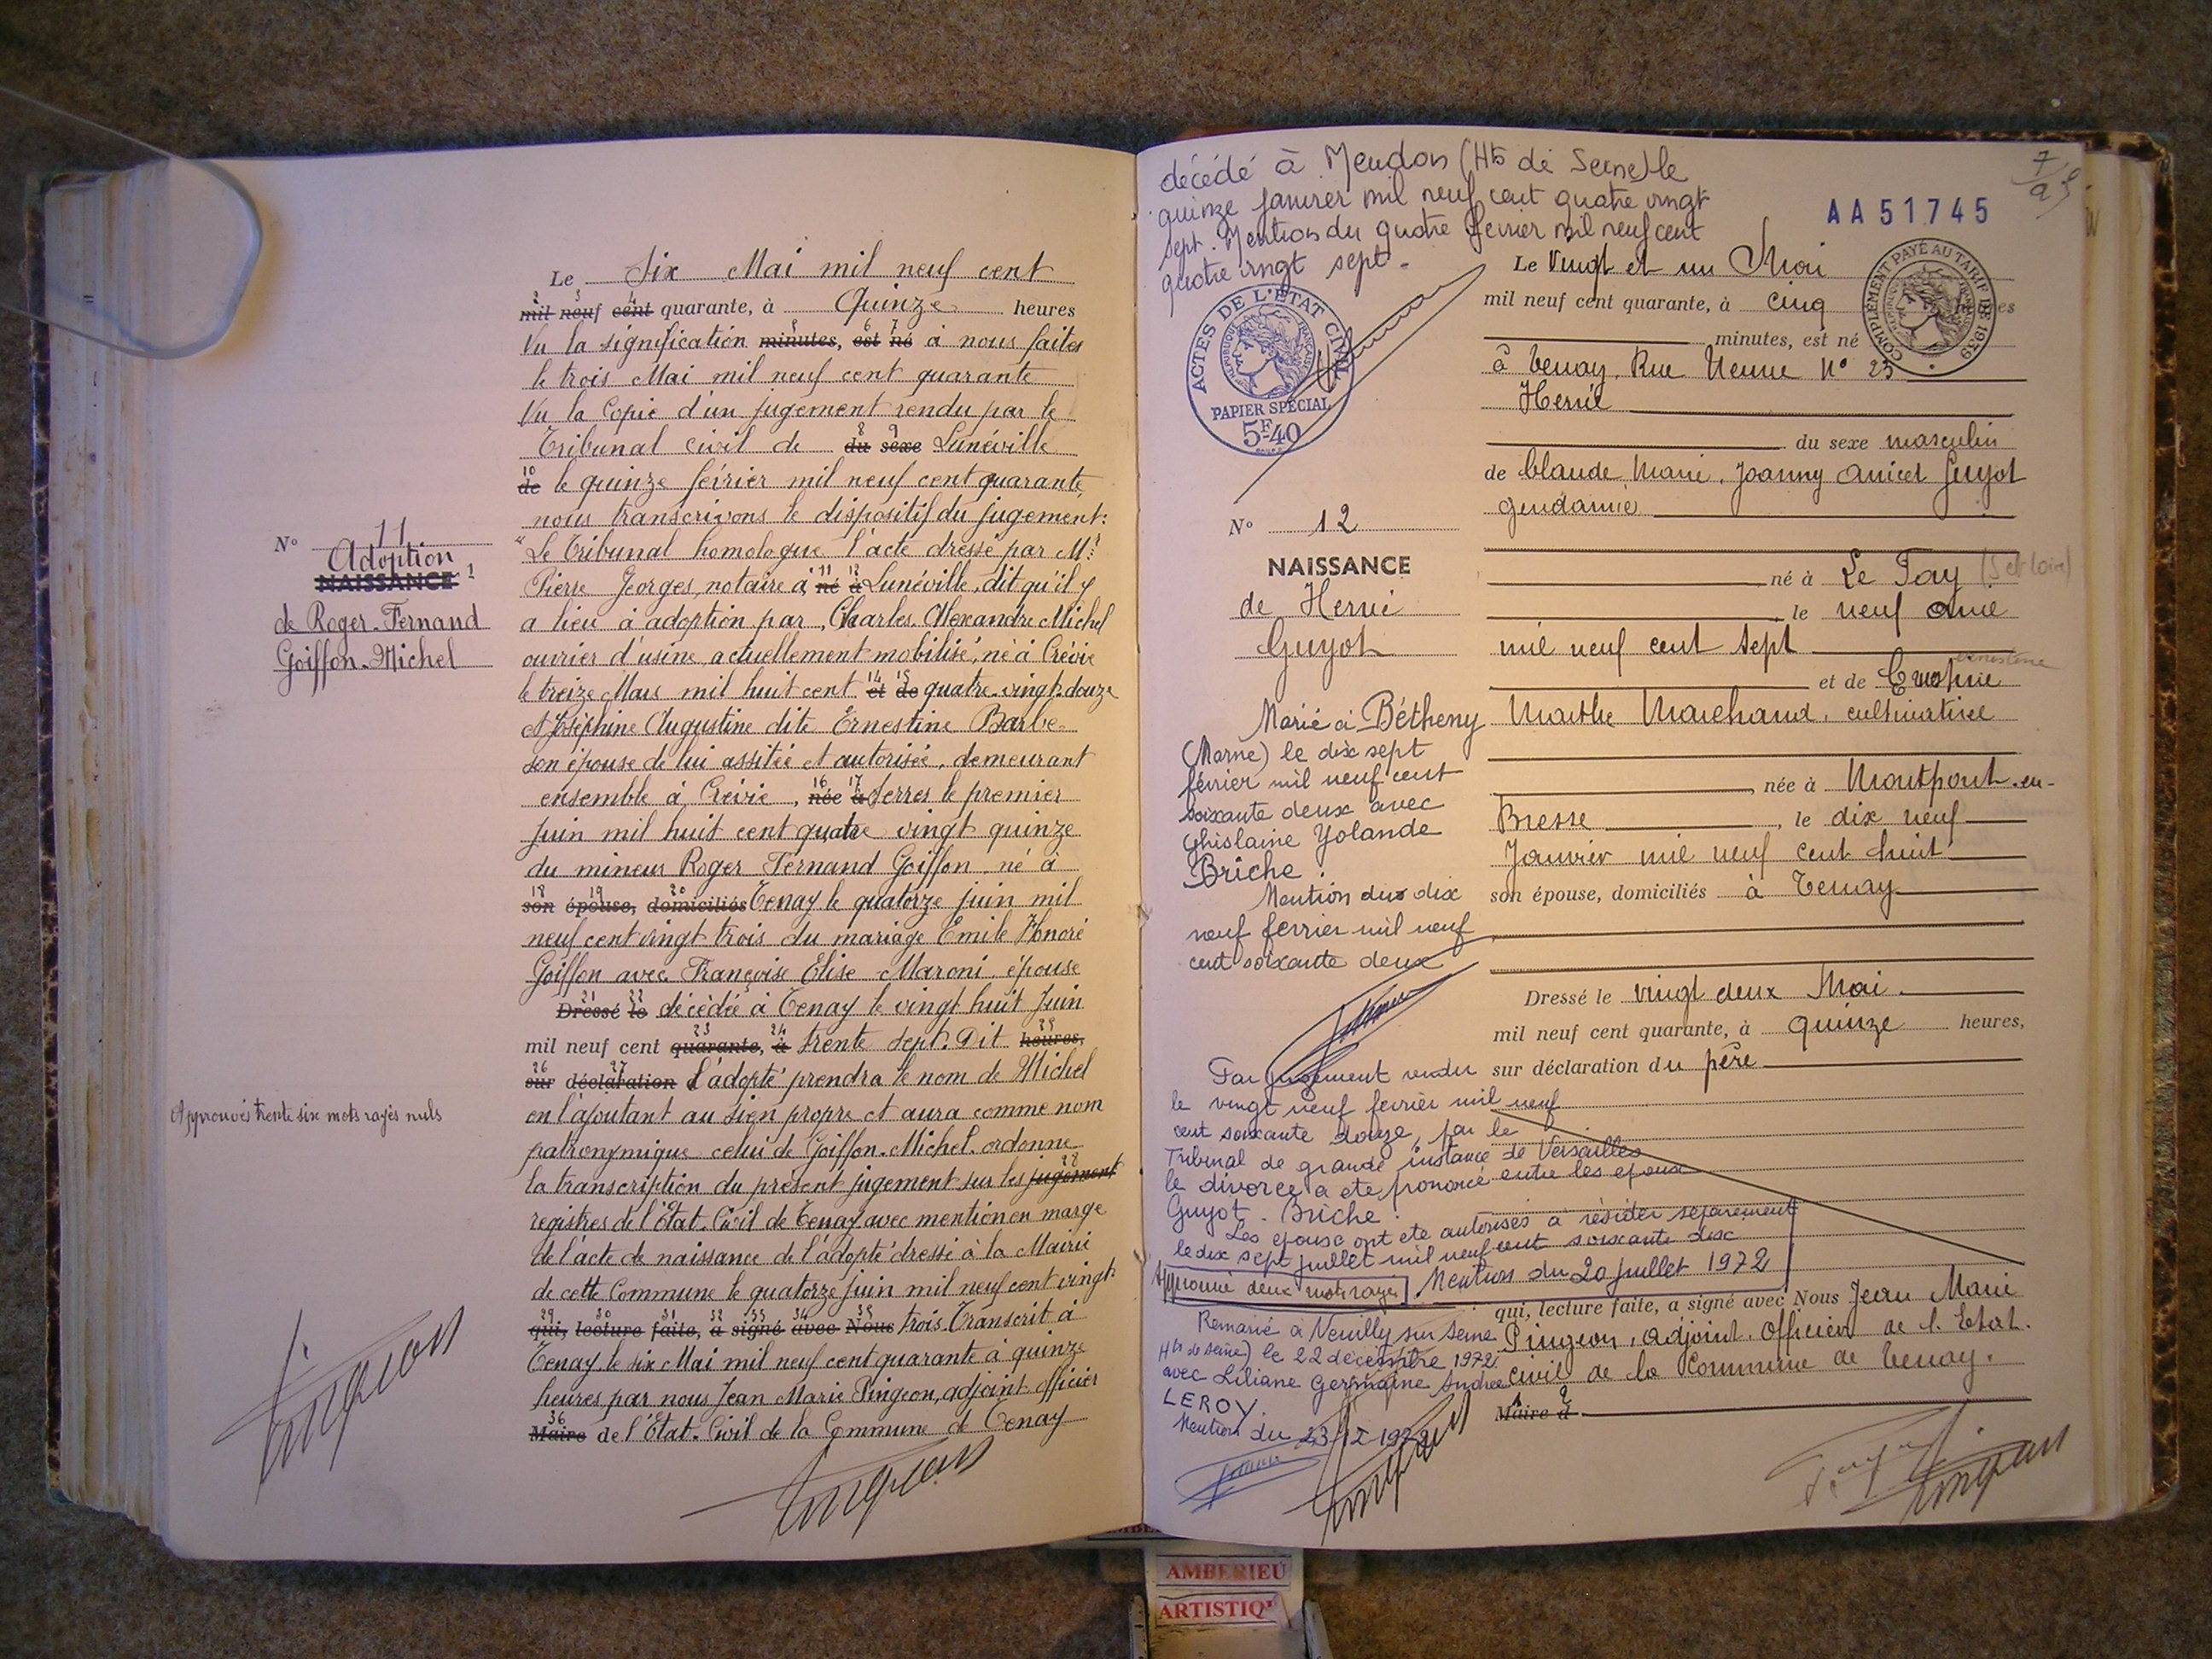 Le Six Mai mil neuf cent
mil neuf cent quarante, à Quinze heures
Vu la signification minutes, est né à nous faites
le trois Mai mil neuf cent quarante
Vu la Copie d'un jugement rendu par le
Tribunal civil de du sexe Lunéville
de le quinze février mil neuf cent quarante,
nous transcrivons le dispositif du jugement:
N° 11
"Le Tribunal homologue l'acte dressé par Mr
Adoption
NAISSANCE 1
Pierre Georges, notaire à né à Lunéville, dit qu'il y
de Roger-Fernand
a lieu à adoption par, Charles Alexandre Michel
Goiffon-Michel
ouvrier d'usine actuellement mobilisé, né à Crévic
le treize Mars mil huit cent et de quatre-vingt-douze
et Joséphine Augustine dite Ernestine Barbe
son épouse de lui assitée et autorisée, demeurant
ensemble à Crévic, née à Serres le premier
Juin mil huit cent quatre vingt quinze
du mineur Roger Fernand Goiffon né à
son épouse, domiciliés Tenay le quatorze juin mil
neuf cent vingt trois du mariage Emile Honoré
Goiffon avec Françoise Elise Maroni épouse
Dressé le décédée à Tenay le vingt huit Juin
mil neuf cent quarante, à trente sept. Dit heures,
sur déclaration l'adopté prendra le nom de Michel
Approuvés trente six mots rayés nuls
en l'ajoutant au sien propre et aura comme nom
patronymique celui de Goiffon-Michel ordonne
la transcription du présent jugement sur les jugement
registres de l'Etat-Civil de Tenay avec mention en marge
de l'acte de naissance de l'adopté dressé à la Mairie
de cette Commune le quatorze juin mil neuf cent vingt
qui, lecture faite, a signé avec Nous trois. Transcrit à
Tenay le six Mai mil neuf cent quarante à quinze
heures par nous Jean Marie Pingeon, adjoint officier
Maire de l'Etat-Civil de la Commune de Tenay
décédé à Meudon (Hts de Seine) le
quinze janvier mil neuf cent quatre vingt
sept. Mention du quatre février mil neuf cent
quatre vingt sept.
AA51745
COMPLÉMENT PAYÉ AU TARIF DE 1939
ACTES DE L'ÉTAT CIVIL
RÉPUBLIQUE FRANÇAISE
PAPIER SPÉCIAL
5F40
N° 12
NAISSANCE
de Hervé
Guyot
Le Vingt et un Mai
mil neuf cent quarante, à cinq heures
minutes, est né
à Tenay, Rue Neuve N° 23
Hervé
du sexe masculin
de Claude Marie, Joanny Anicet Guyot
gendarme
né à Le Fay (S et Loire)
le neuf avril
mil neuf cent sept
ernestine
et de
Marthe Marchand, cultivatrice
née à Montpont-en-
Bresse, le dix neuf
Janvier mil neuf cent huit
son épouse, domiciliés à Tenay
Dressé le vingt deux Mai
mil neuf cent quarante, à quinze heures,
sur déclaration du père
qui, lecture faite, a signé avec Nous Jean Marie
Pingeon, adjoint, Officier de l'Etat.
civil de la Commune de Tenay.
Maire d
Marié à Bétheny
(Marne) le dix sept
février mil neuf cent
soixante deux avec
Ghislaine Yolande
Briche.
Mention du dix
neuf fevrier mil neuf
cent soixante deux
Par jugement rendu
le vingt neuf fevrier mil neuf
cent soixante douze, par le
Tribunal de grande instance de Versailles
le divorce a ete prononcé entre les epoux
Guyot - Briche.
Les epoux ont ete autorisés à résider séparement
le dix sept juillet mil neuf cent soixante dix
Approuvé deux mots rayés. Mention du 20 juillet 1972
Remarié à Neuilly sur Seine
Hts de Seine) le 22 décembre 1972
avec Liliane Germaine Andrée
LEROY.
Mention du 23-12-1972
AMBERIEU
ARTISTIQ